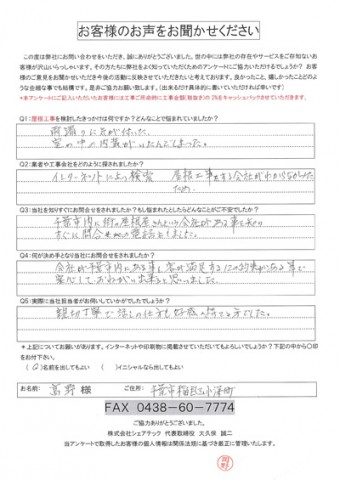 お客様のお声をお聞かせください
この度は弊社にお問い合わせをいただき、誠にありがとうございました。世の中には弊社の存在やサービスをご存知ないお
客様が沢山いらっしゃいます。その方たちに弊社をよく知っていただくためのアンケートにご協力いただけるでしょうか？ お客
様のご意見をお聞かせいただき今後の活動に反映させていきたいと考えております。良かったこと、嬉しかったことどのよ
うな些細な事でも結構です。是非ご協力お願い致します。(出来るだけ具体的に書いていただければ幸いです)
*本アンケートにご記入いただいたお客様には工事ご用命時に工事金額(税抜き)の2％をキャッシュバックさせていただきます。
Q1:屋根工事を検討したきっかけは何ですか？どんなことで悩まれていましたか？
雨漏りに気が付いた。
Q2:業者や工事会社をどのように探されましたか？
インターネットにより検索 屋根工事をする会社がわからなかった
ため。
Q3:当社を知りすぐにお問合せをされますか？もし悩まれたとしたらどんなことがご不安でしたか？
千葉市内に街の屋根屋さんという会社がある事を知り
すぐに問合せの電話をしました。
Q4:何が決め手となり当社にお問合せをされましたか？
会社が千葉市内にある事、
安心しておねがい出来ると思いました。
Q5:実際に当社担当者がお伺いしていかがでしたでしょうか？
親切丁寧で話しの仕方も好感の持てる方でした。
*上記についてお願いがあります。インターネットや印刷物に掲載させていただいてもよろしいでしょうか？下記の中から〇印
をお付け下さい。
(〇)名前を出してもよい ( )イニシャルなら出してもよい
お名前: 高野 様 ご住所: 千葉市稲毛区小深町
FAX 0438-60-7774
ご協力ありがとうございました。
株式会社シェアテック 代表取締役 大久保 誠二
当アンケートで取得したお客様の個人情報は関係法規に基づき厳正に管理いたします。